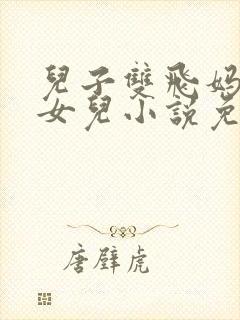 兒子雙飛媽
女兒小說免
唐璧虎